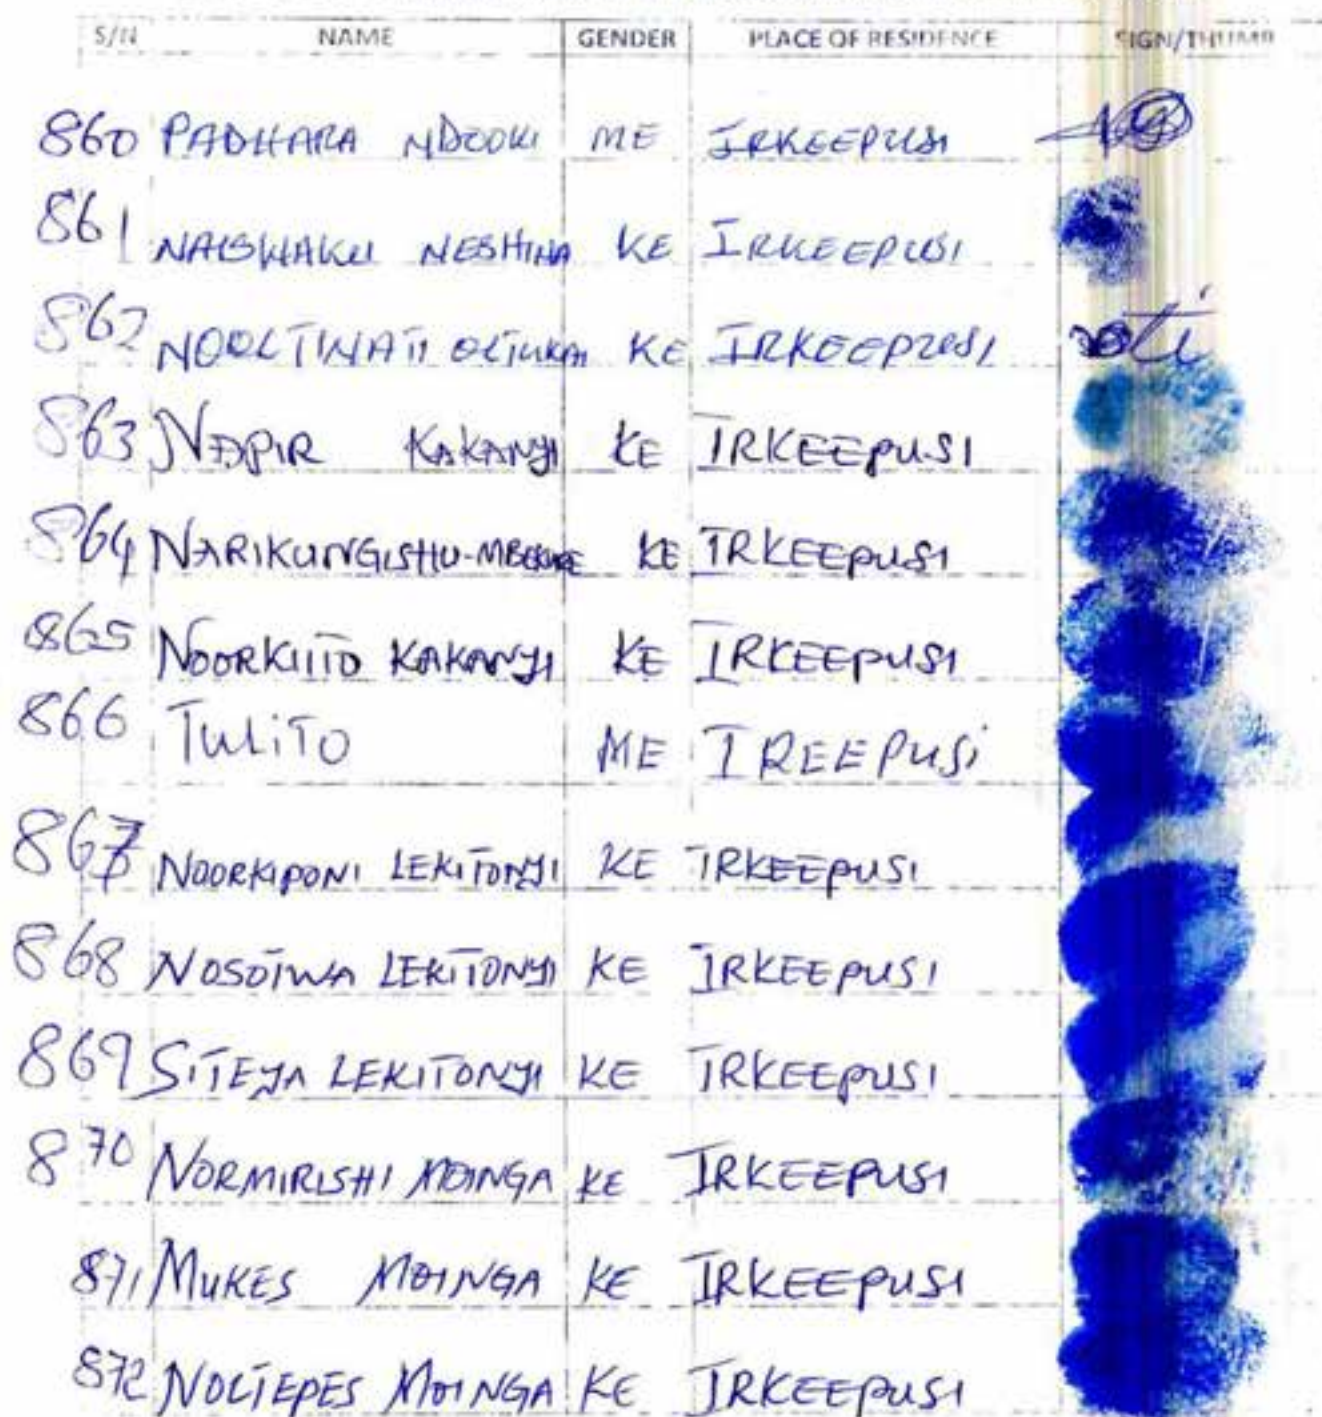 S/N NAME GENDER PLACE OF RESIDENCE SIGN/THUMB
860 PADHARA NDOOKI ME IRKEEPUSI
861 NAISWAKU NESHINA KE IRKEEPUSI
862 NOOLTINATI OLTUKAI KE IRKEEPUSI
863 NAPIR KAKANYI KE IRKEEPUSI
864 NARIKUNGISHU-MBEKURE KE IRKEEPUSI
865 NOORKIITO KAKANYI KE IRKEEPUSI
866 TULITO ME IREEPUSI
867 NOORKIPONI LEKITONYI KE IRKEEPUSI
868 NOSOTWA LEKITONYI KE IRKEEPUSI
869 SITEYA LEKITONYI KE IRKEEPUSI
870 NORMIRISHI MOINGA KE IRKEEPUSI
871 MUKES MOINGA KE IRKEEPUSI
872 NOLTEPES MOINGA KE IRKEEPUSI